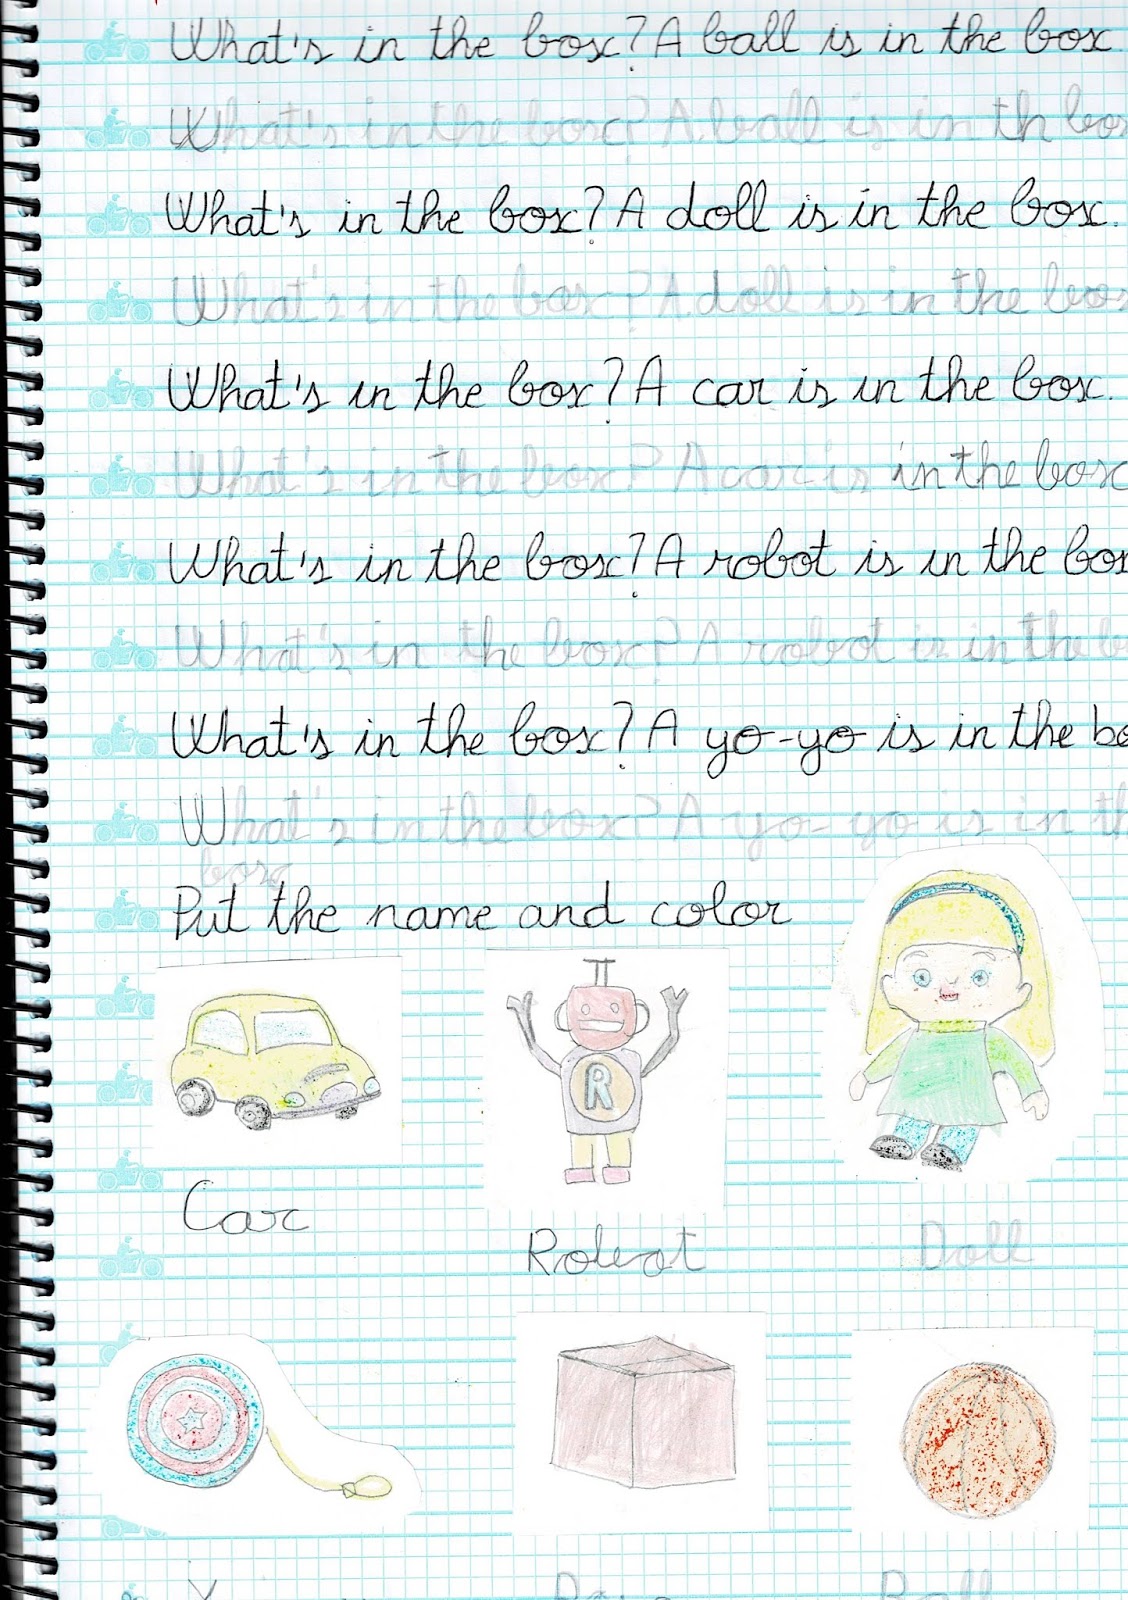 What's in the box? A ball is in the box.
What's in the box? A ball is in th box
What's in the box? A doll is in the box.
What's in the box? A doll is in the box
What's in the box? A car is in the box.
What's in the box? A car is in the box
What's in the box? A robot is in the box
What's in the box? A robot is in the b
What's in the box? A yo-yo is in the bo
What's in the box? A yo-yo is in th
box
Put the name and color
R
Car
Robot
Doll
Ball